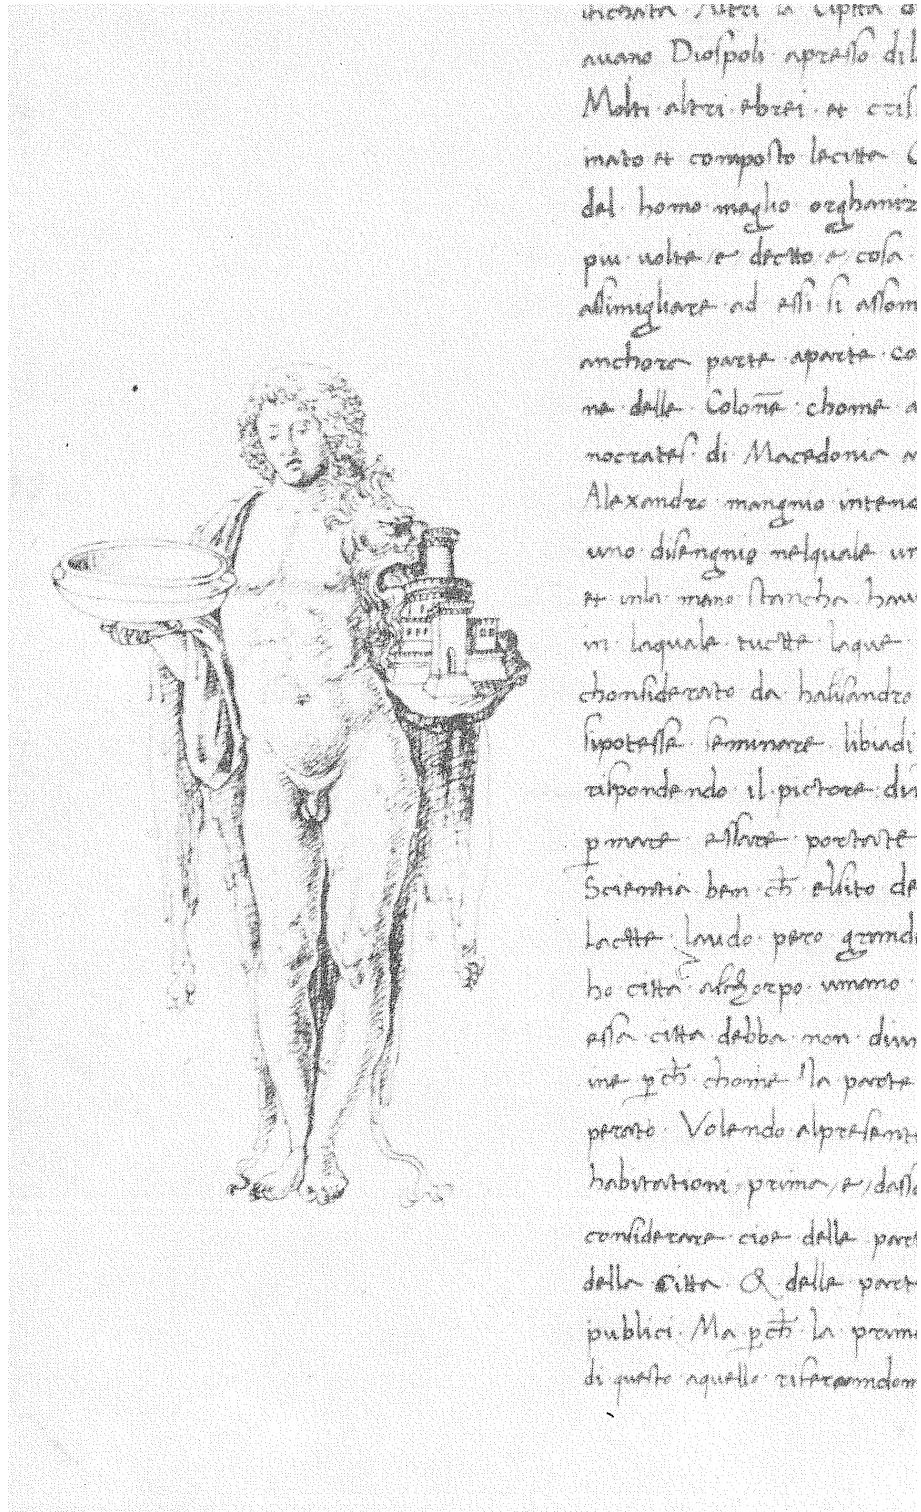 avano Diospoli · apresso di
Molti · altri · ebrei · et cris
inato et composto lecitta
del · homo · meglio · orghaniz
piu · uolte / e · decto · e · cosa ·
assimigliare · ad · essi · si · assom
anchora · parte · aparte · co
ne · delle · Colon̄e · chome · a
nocrates · di · Macedonia
Alexandro · mangnio · inteno
uno · disengnio · nelquale · un
et · inla · mano · stancha · hau
in · laquale · tucte · laque ·
chonsiderato · da · halisandro
sipotesse · seminare · libiadi
rispondendo · il · pictore · di
p mare · essare · portate
Scientia · ben · ch̄ · elsito · de
Lactte · laudo · pero · grand
ho · citta · alchorpo · umano ·
essa · citta · debba · non · diu
ine · p ch̄ · chome · la · parte
perato · Volendo · alpresent
habitationi · prima / e / dass
considerare · cioe · delle · part
della · Citta · & · delle · part
publici · Ma · p ch̄ · la · prim
di · questo · aquello ·